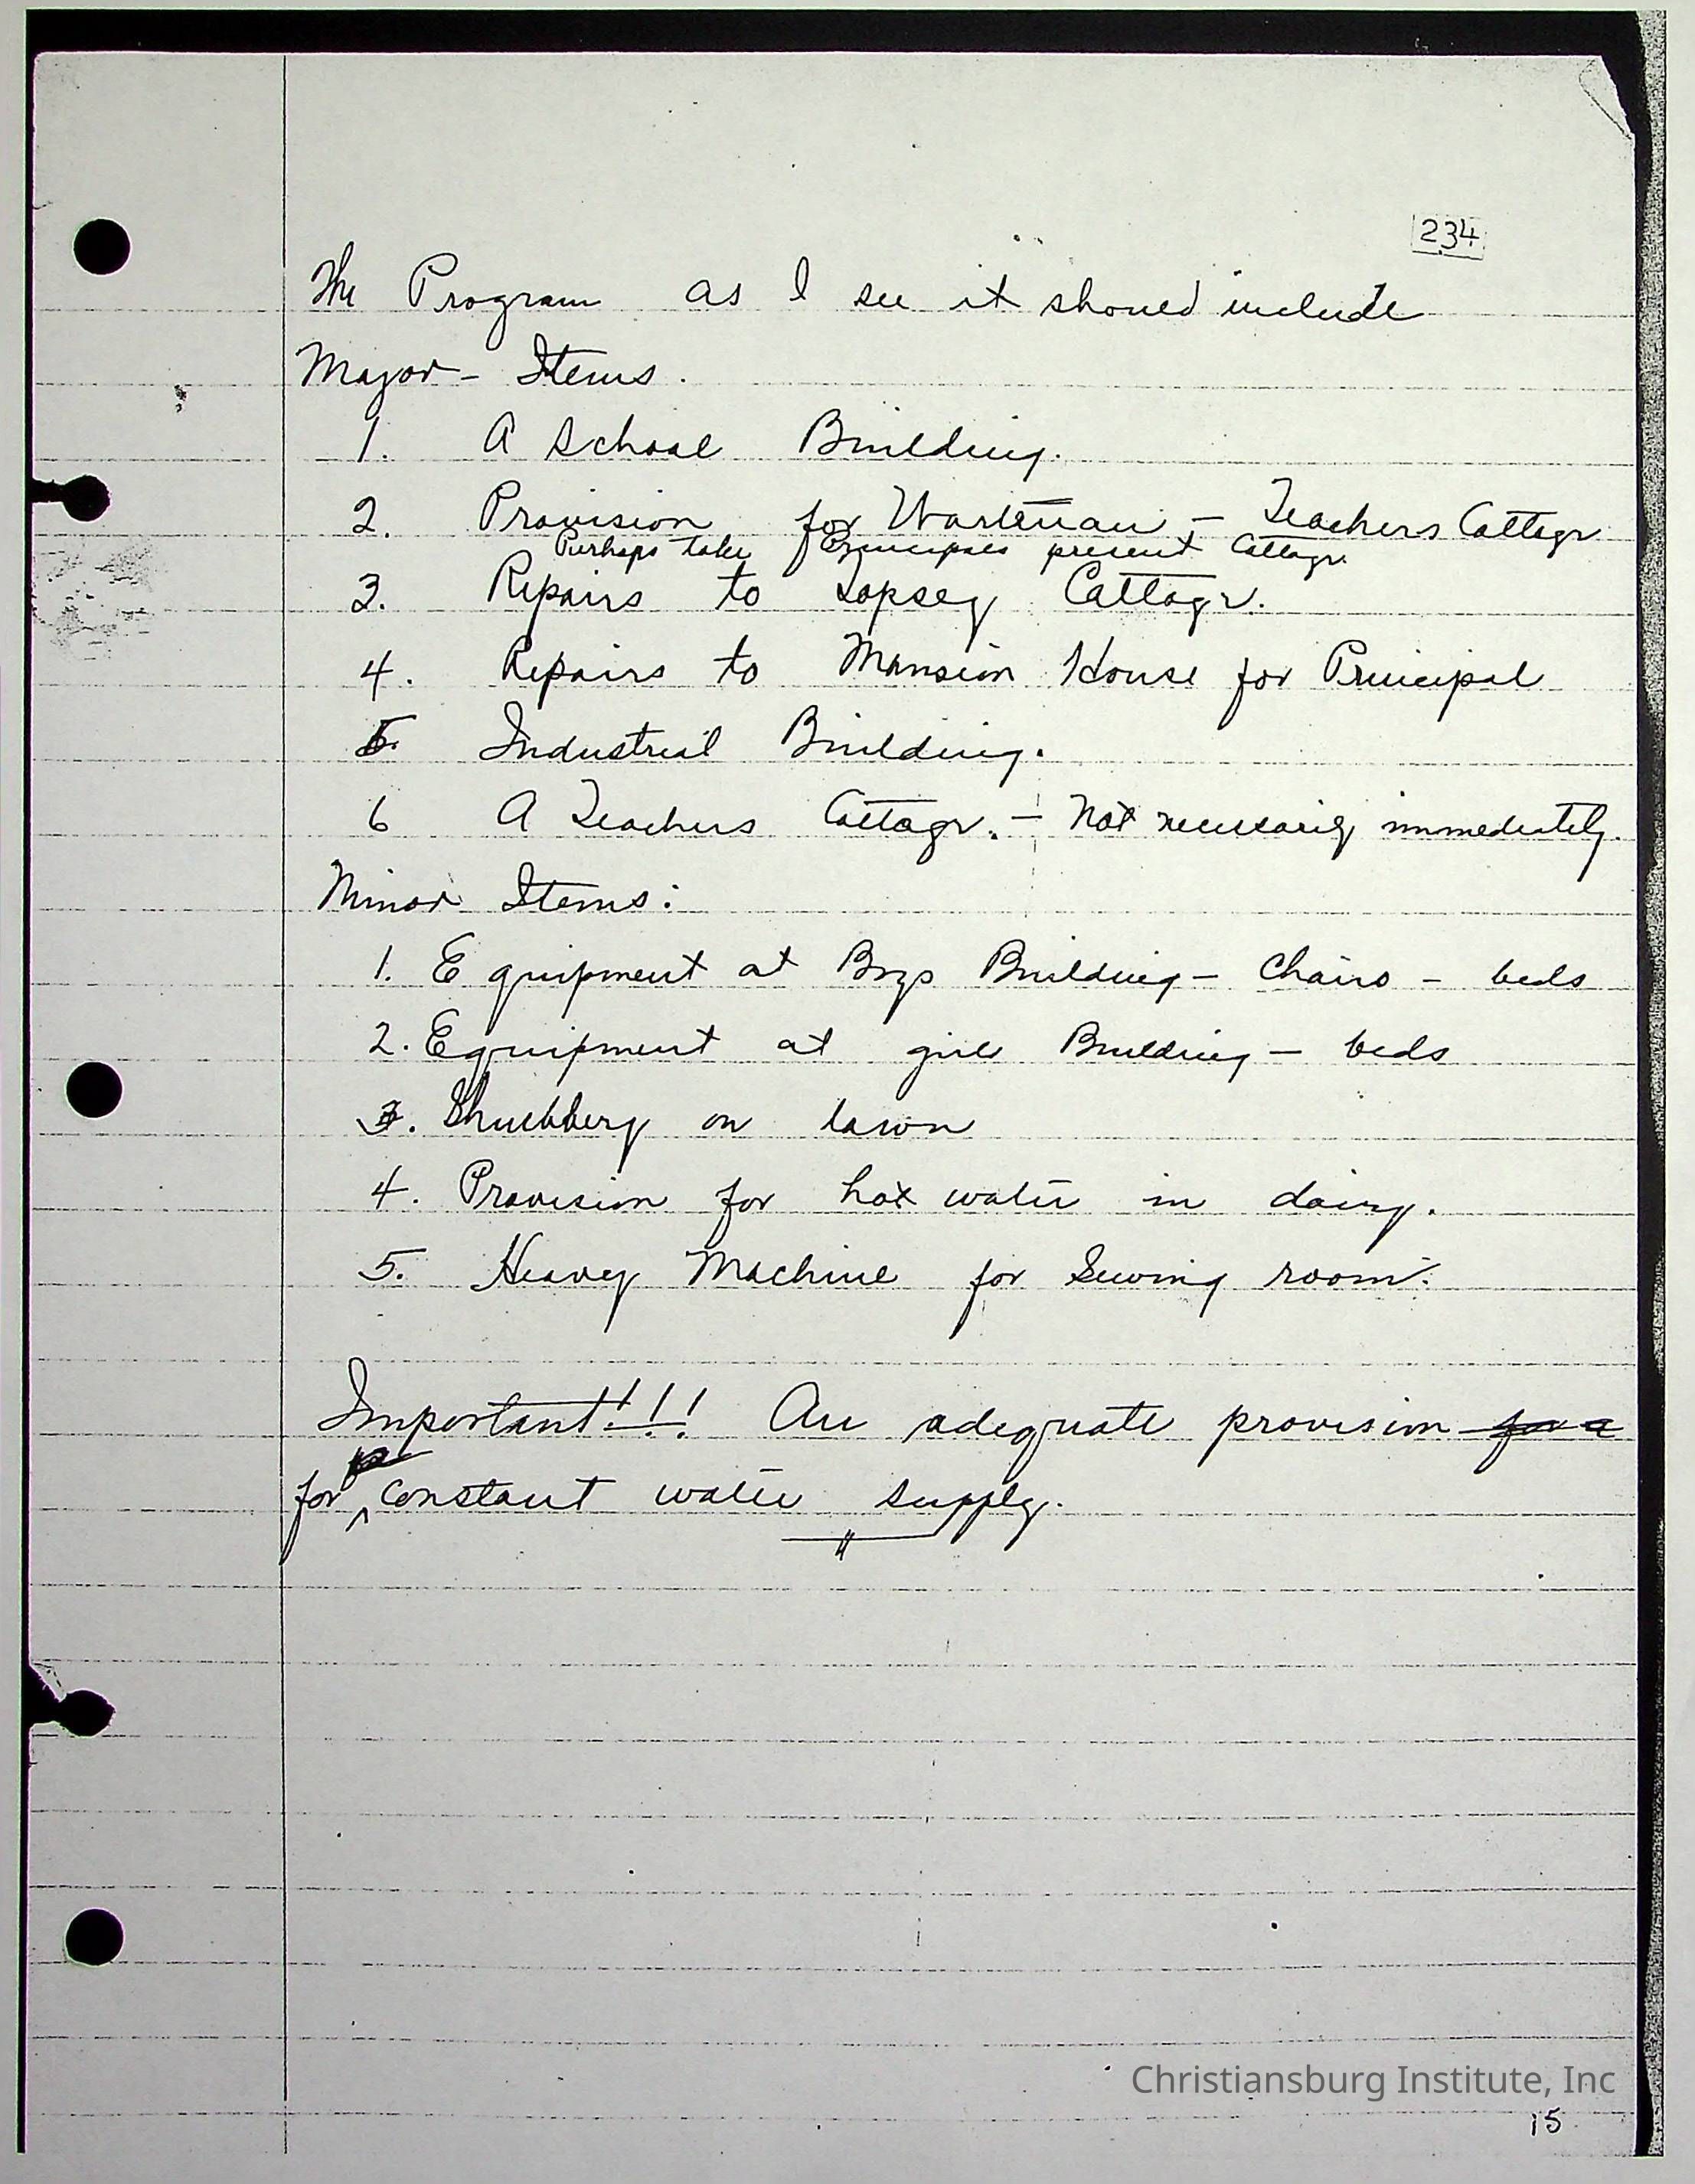 234
The Program as I see it should include
Major - Items.
1. A School Building.
2. Provision for Workman - Teachers Cottage
Perhaps take Principals present Cottage.
3. Repairs to Lapsey Cottage.
4. Repairs to Mansion House for Principal
5. Industrial Building.
6 A Teachers Cottage. - Not necessarily immediately.
Minor Items:
1. Equipment at Boys Building - Chairs - beds
2. Equipment at girls Building - beds
3. Shrubbery on lawn
4. Provision for hot water in dairy.
5. Heavy Machine for Sewing room.
Important!!! An adequate provision for a
for constant water supply.
Christiansburg Institute, Inc
15